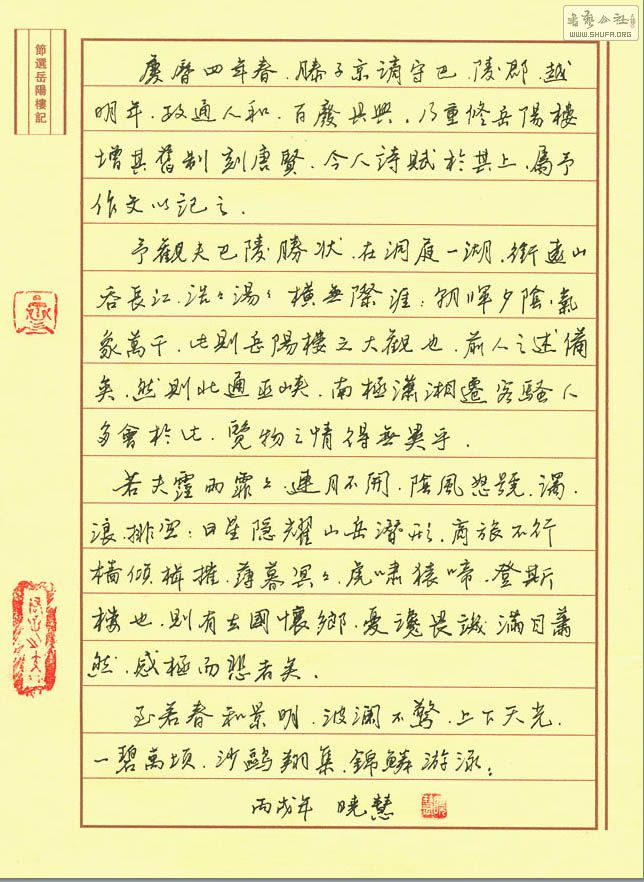 書藝公社
WWW.SHUFA.ORG
節選岳陽樓記
慶曆四年春.滕子京請守巴.陵郡.越
明年.政通人和.百廢具興.乃重修岳陽樓
增其舊制刻唐賢.今人詩賦於其上.屬予
作文以記之.
予觀夫巴陵勝狀.在洞庭一湖.銜遠山
吞長江.浩々湯々橫無際涯;朝暉夕陰.氣
象萬千.此則岳陽樓之大觀也.前人之述備
矣.然則北通巫峽.南極瀟湘遷客騷人
多會於此.覽物之情得無異乎.
若夫霪雨霏々.連月不開.陰風怒號.濁.
浪.排空;日星隱耀山岳潛形.商旅不行
檣傾楫摧.薄暮冥々.虎嘯猿啼.登斯
樓也.則有去國懷鄉.憂讒畏譏滿目蕭
然.感極而悲者矣.
至若春和景明.波瀾不驚.上下天光.
一碧萬頃.沙鷗翔集.錦鱗游泳;
丙戌年 曉慧